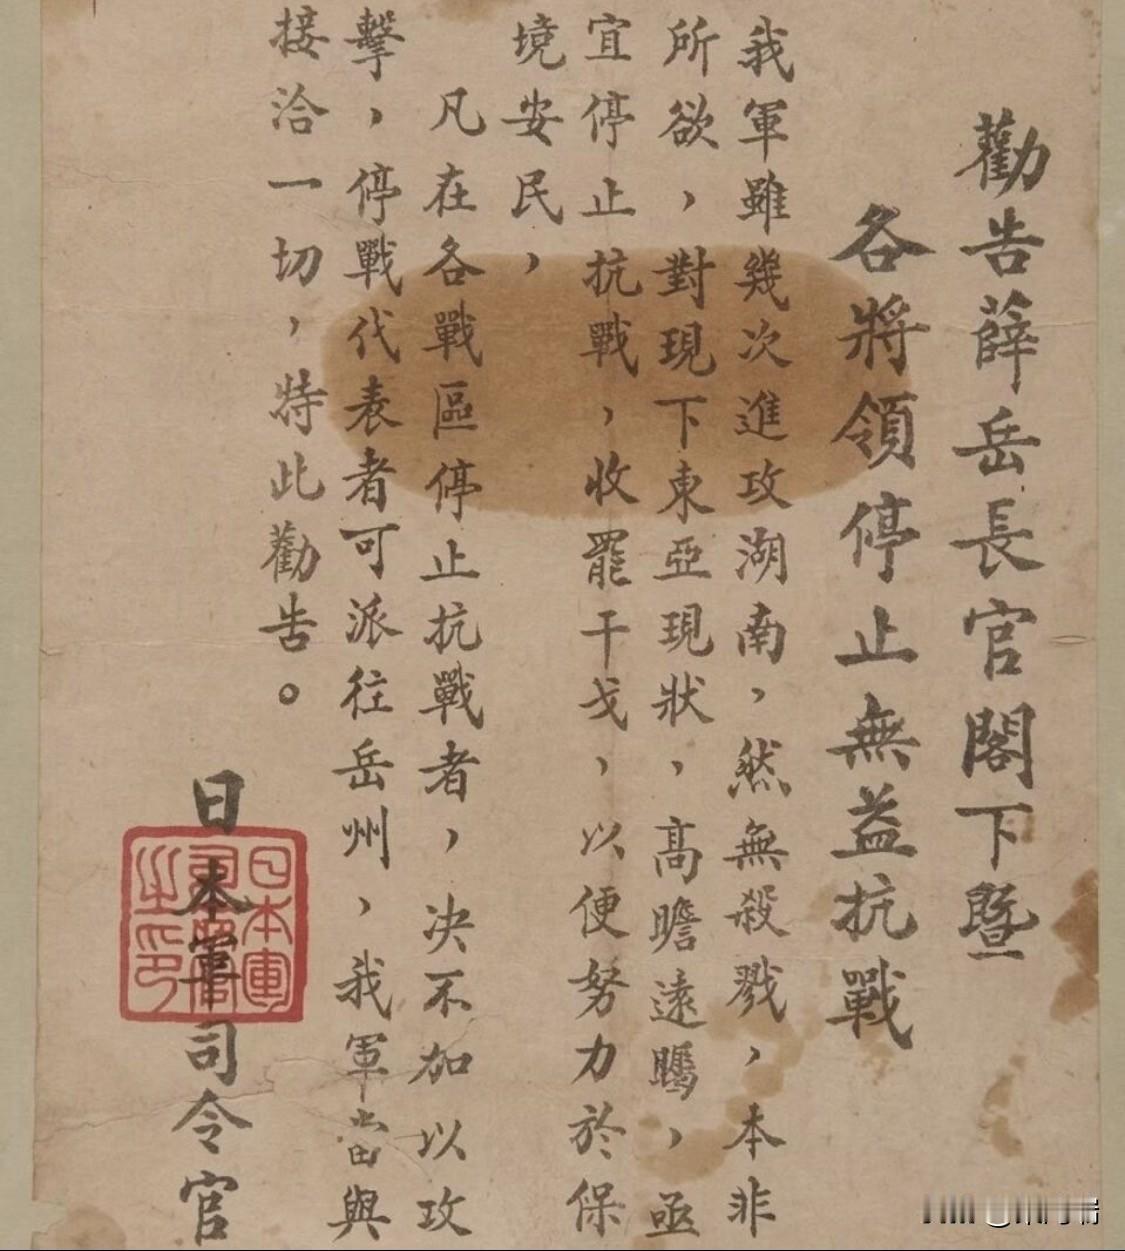 勸告薛岳長官閣下暨
各將領停止無益抗戰
我軍雖幾次進攻湖南，然無殺戮，本非
所欲，對現下東亞現狀，高瞻遠矚，亟
宜停止抗戰，收罷干戈，以便努力於保
境安民，
凡在各戰區停止抗戰者，決不加以攻
擊，停戰代表者可派往岳州，我軍當與
接洽一切，特此勸告。
日本軍司令官
日本軍
司令官
之印